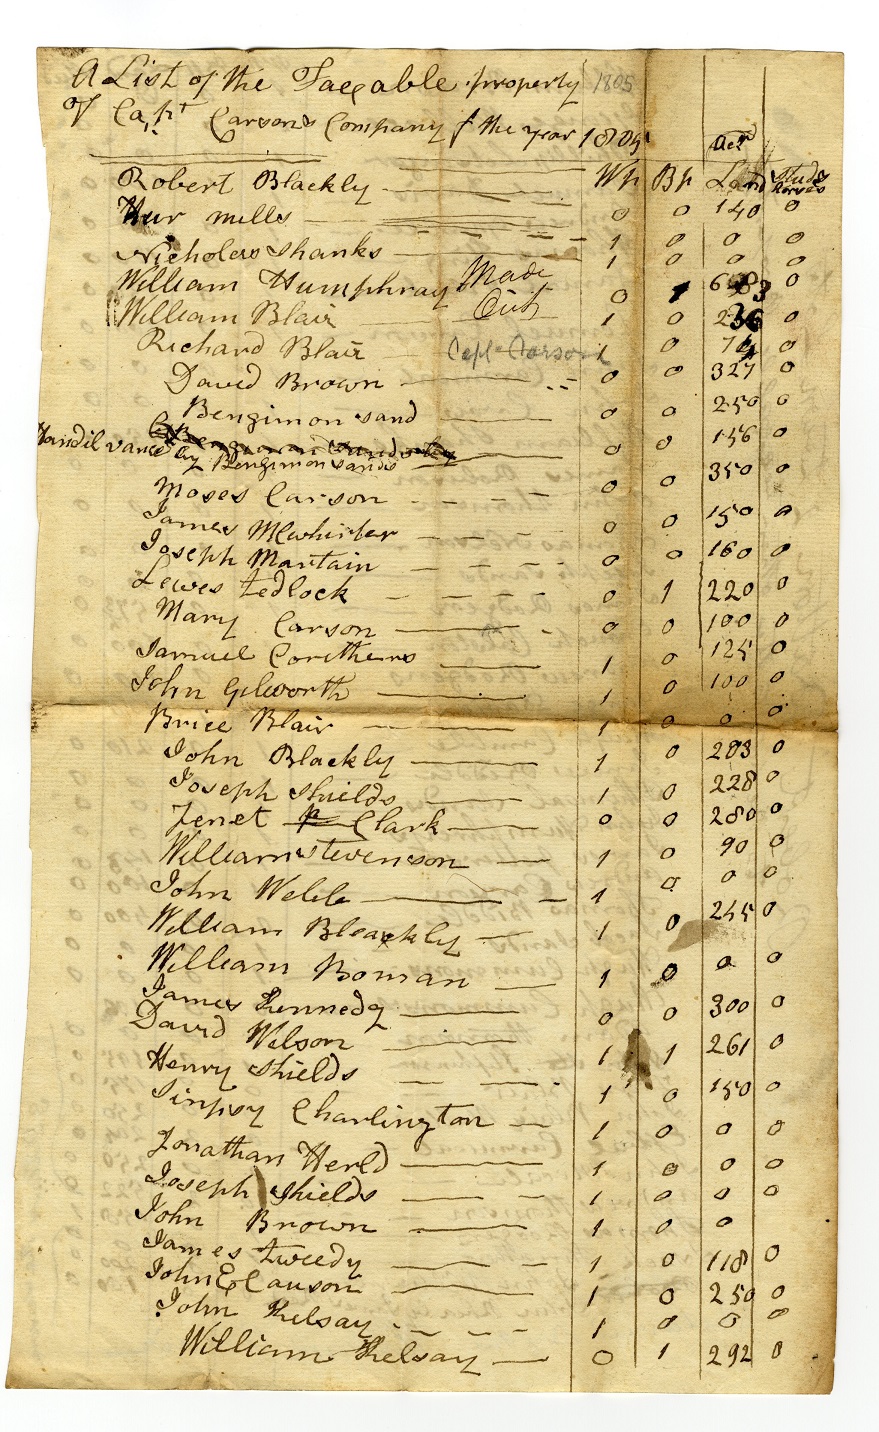 A List of the Taxable property 1805
of Capt Carsons Company f the year 1805
Wp Bp acr Land Studs horses
Robert Blackly 0 0 140 0
Hur mills 1 0 0 0
Nicholas Shanks 1 0 0 0
William Humphray Made Out 0 1 683 0
William Blair 1 0 236 0
Richard Blair Capt Carson 1 0 74 0
David Brown 0 0 327 0
Bengimon Sand 0 0 250 0
Handil vance by Bengimon Sands 0 0 156 0
Moses Carson 0 0 350 0
James McWhirter 0 0 150 0
Joseph Martain 0 0 160 0
Lewes tedlock 0 1 220 0
Mary Carson 0 0 100 0
Samuel Corithers 1 0 125 0
John Gilworth 1 0 100 0
Brice Blair 1 0 0 0
John Blackly 1 0 283 0
Joseph Shields 1 0 228 0
Jenet Clark 0 0 280 0
William Stevenson 1 0 90 0
John Webb 1 0 0 0
William Bleackly 1 0 245 0
William Boman 1 0 0 0
James Kennedy 0 0 300 0
David Wilson 1 1 261 0
Henry Shields 1 0 150 0
Simpsy Charlington 1 0 0 0
Jonathan Herld 1 0 0 0
Joseph Shields 1 0 0 0
John Brown 1 0 0
James tweedy 1 0 118 0
John E Clauson 1 0 250 0
John Kelsay 1 0 0 0
William Kelsay 0 1 292 0